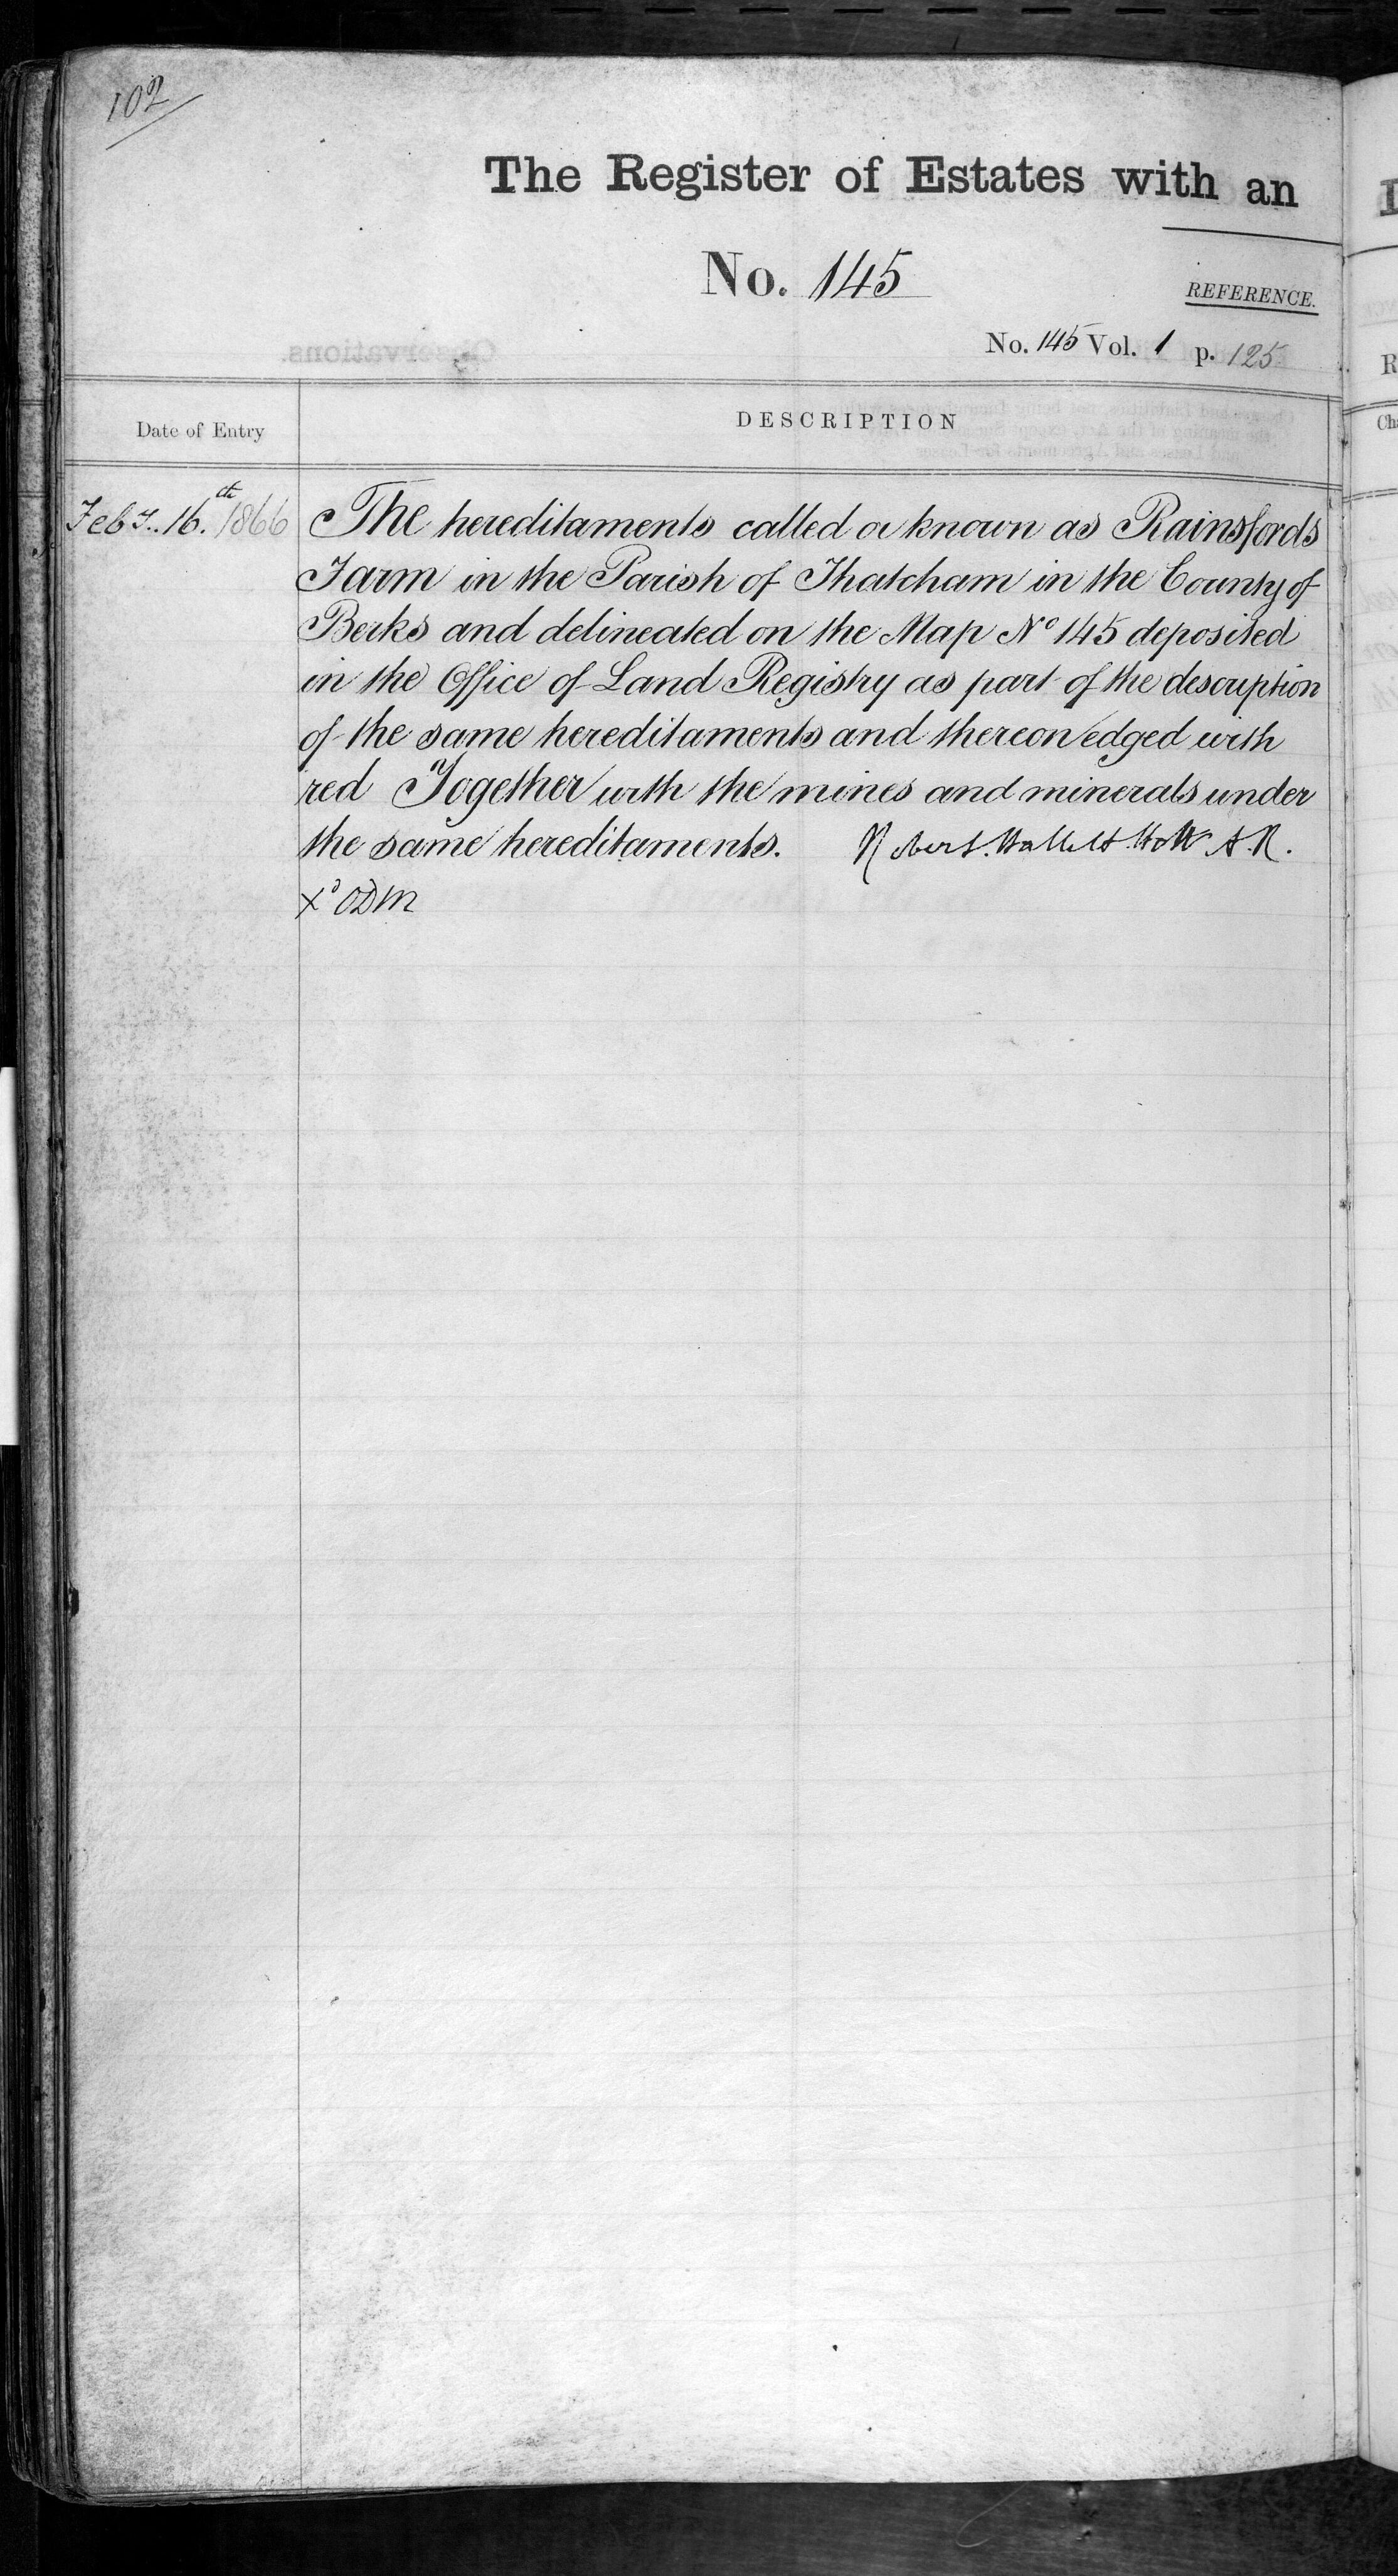 102
The Register of Estates with an
No. 145
REFERENCE.
No. 145 Vol. 1 p. 125
Date of Entry
DESCRIPTION
Feby. 16.th 1866
The hereditaments called or known as Rainsfords
Farm in the Parish of Thatcham in the County of
Berks and delineated on the Map No 145 deposited
in the Office of Land Registry as part of the description
of the same hereditaments and thereon edged with
red Together with the mines and minerals under
the same hereditaments. Robert. Hallett Holt A.R.
Xd ODM